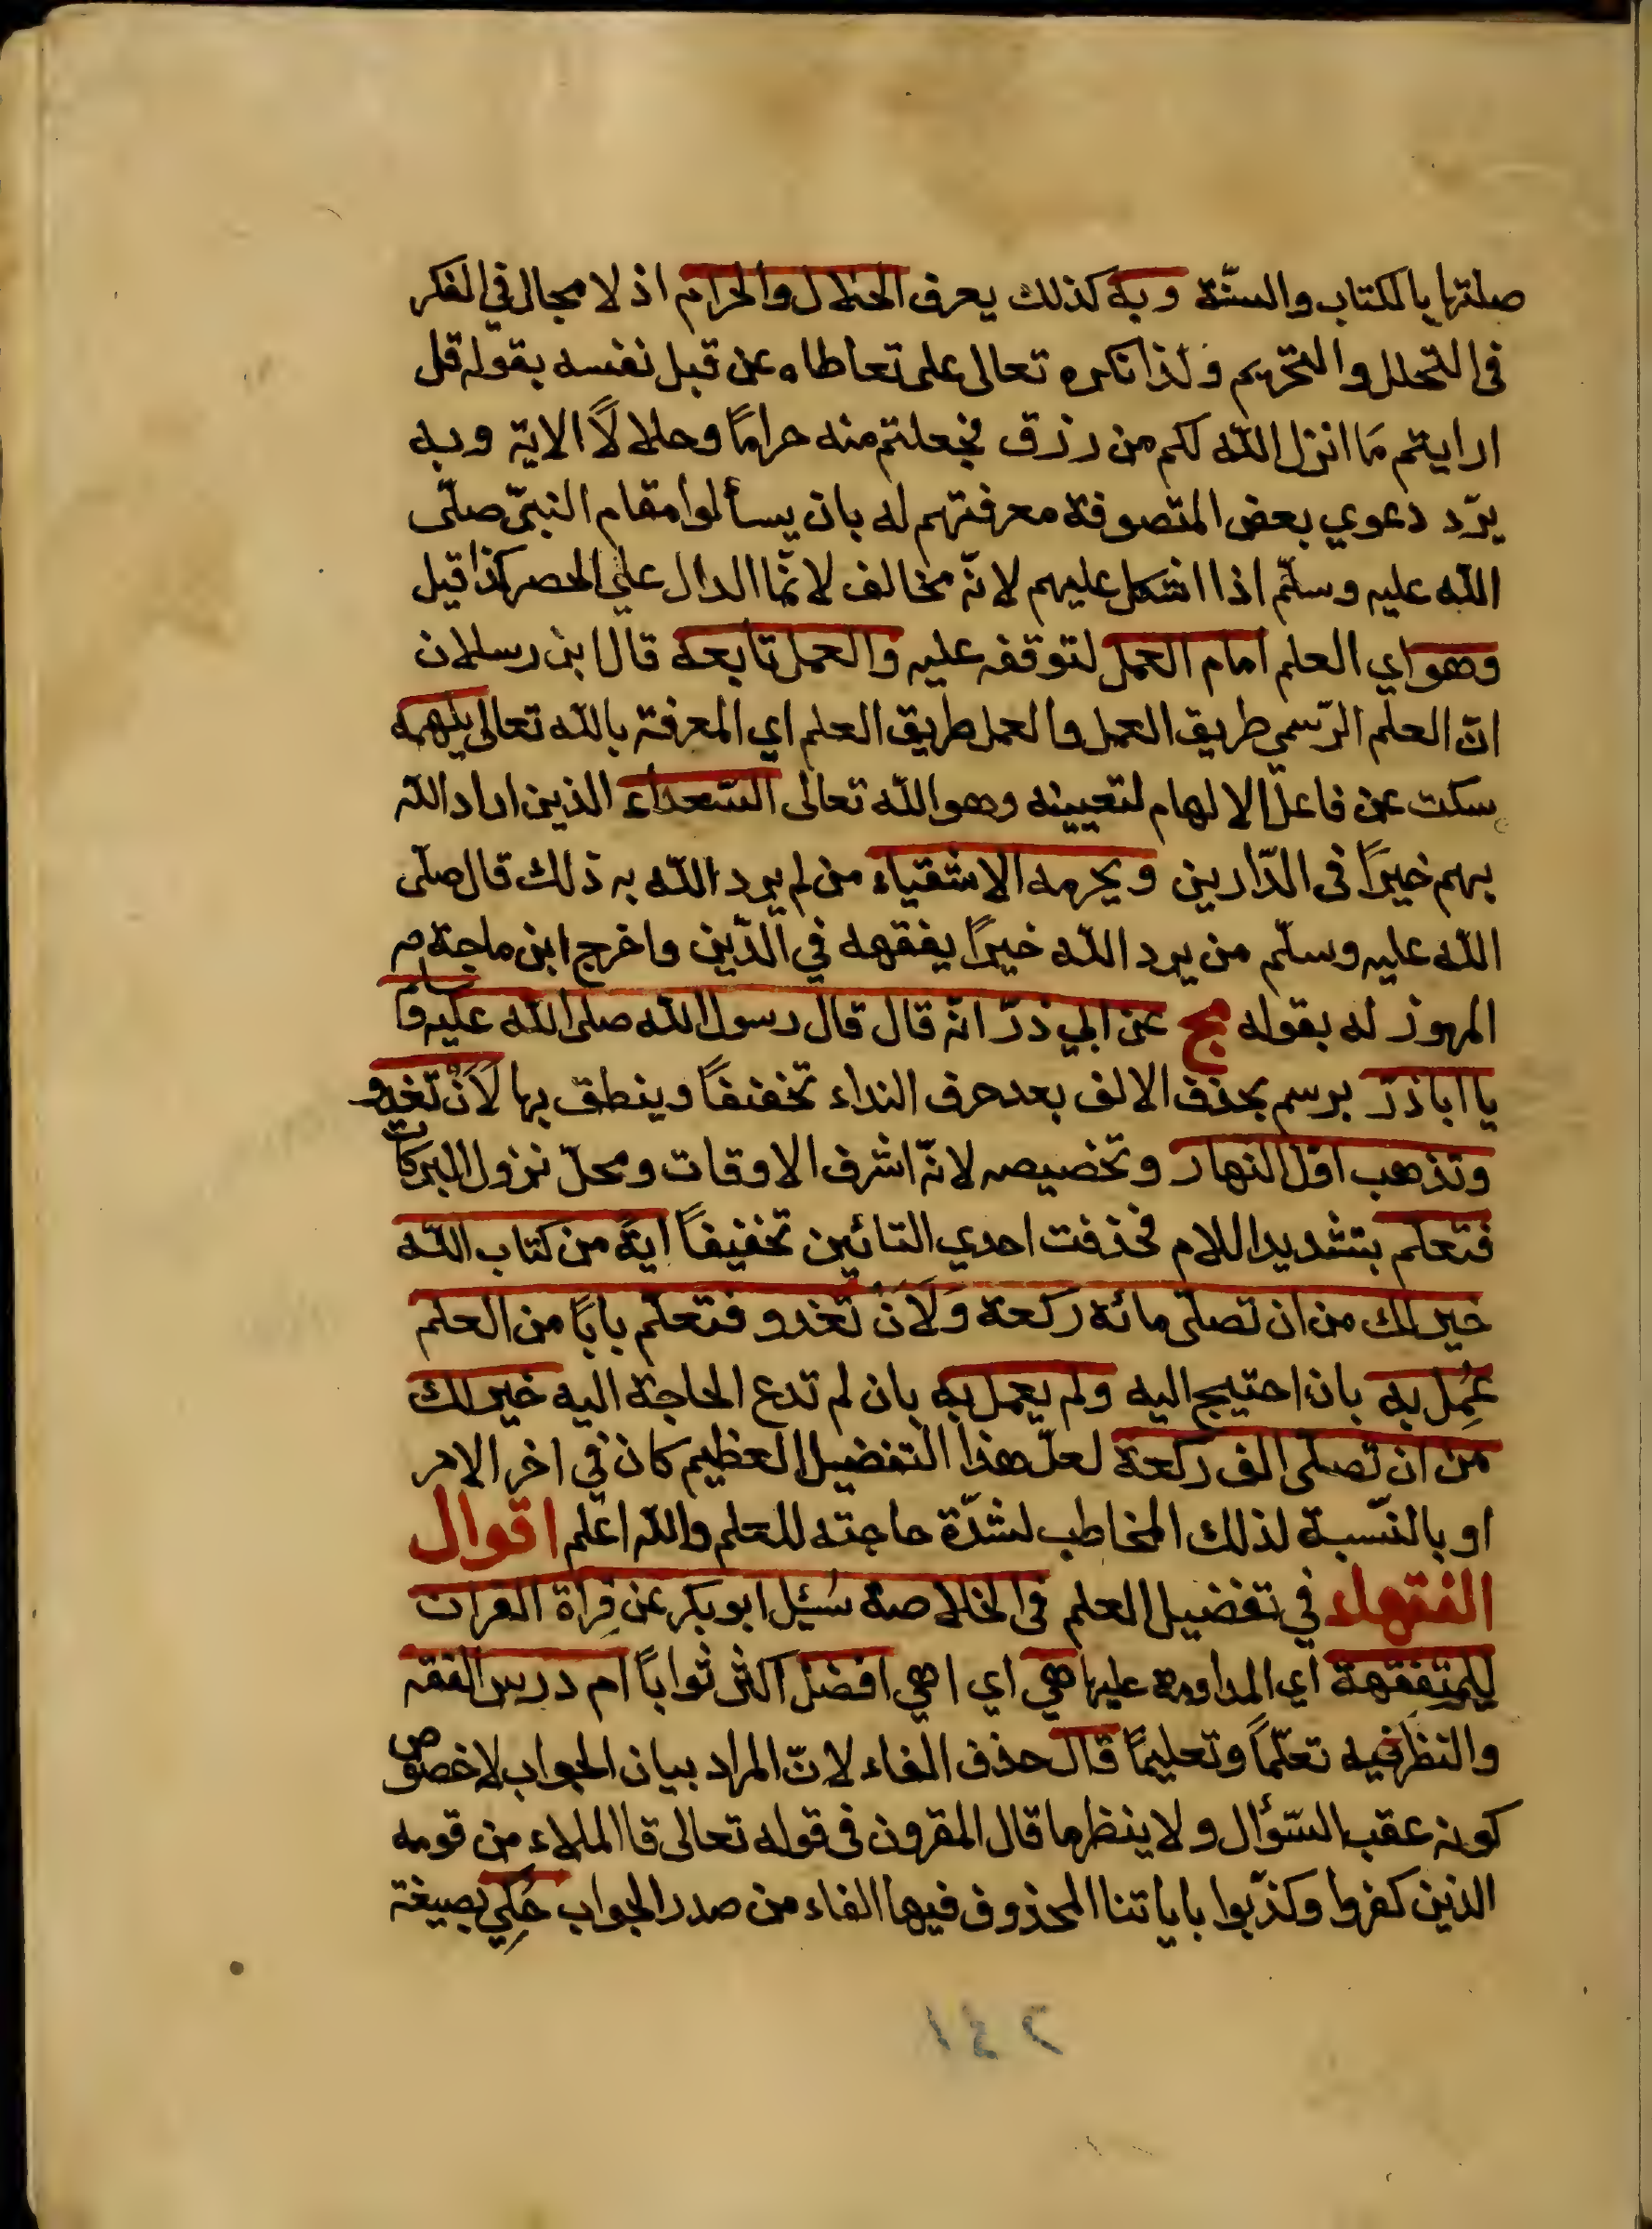 صلتها بالكتاب والسنّة وبه كذلك يعرف الحلال والحرام اذ لا مجال في الفكر
فى التحلل والتحريم ولذا نكره تعالى على تعاطاه عن قبل نفسه بقوله قل
ارايتم مَا انزل الله لكم من رزق فجعلتم منه حرامًا وحلالاً الاية وبه
يرّد دعوي بعض المتصوفة معرفتهم له بان يسألوا مقام النبىّ صلّى
الله عليه وسلّم اذا اشكل عليهم لانّه مخالف لانّما الدال علي الحصر كذا قيل
وهو اي العلم امام العمل لتوقفه عليه والعمل تابعه قال ابن رسلان
انّ العلم الرّسمي طريق العمل والعمل طريق العلم اي المعرفة بالله تعالى يلهمه
سكت عن فاعل الالهام لتعيينه وهو الله تعالى السّعداء الذين اراد الله
بهم خيرًا فى الدّارين ويحرمه الاشقياء من لم يرد الله به ذلك قال صلّى
الله عليه وسلّم من يرد الله خيرًا يفقهه في الدّين واخرج ابن ماجة مر
المهوز له بقوله مج عن ابي ذرّ انّه قال قال رسول الله صلى الله عليه وسلم
يا اباذرّ برسم بحذف الالف بعد حرف النداء تخفنفًا وينطق بها لَاَنْ تغدو
وتذهب اوّل النهار وتخصيصه لانّه اشرف الاوقات ومحلّ نزول البركات
فتعلّم بتشديد اللام فحذفت احدي التائين تخفيفًا ايةً من كتاب الله
خير لك من ان تصلّى مائة ركعة وَلَاَنْ تغدو فتعلّم بابًا من العلم
عُمِل به بان احتيج اليه ولم يعمل به بان لم تدع الحاجة اليه خير لك
من ان تصلّى الف ركعة لعلّ هذا التفضيل العظيم كان في اخر الامر
او بالنّسبة لذلك المخاطب لشدّة حاجته للعلم والله اعلم اقوال
الفقهاء في تفضيل العلم فى الخلاصة سُئِل ابو بكر عن قِراة القران
للمتفقهة اي المداومة عليها هي اي اهي افضل اكثر ثوابًا ام درس الفقه
والنظر فيه تعلّمًا وتعليمًا قال حذف الفاء لانّ المراد بيان الجواب لا خصوص
كونه عقب السّؤال ولا ينظر ما قال المقرون فى قوله تعالى قا الملاء من قومه
الذين كفروا وكذّبوا باياتنا المحذوف فيها الفاء من صدر الجواب حُكِي بصيغة
٢٤١